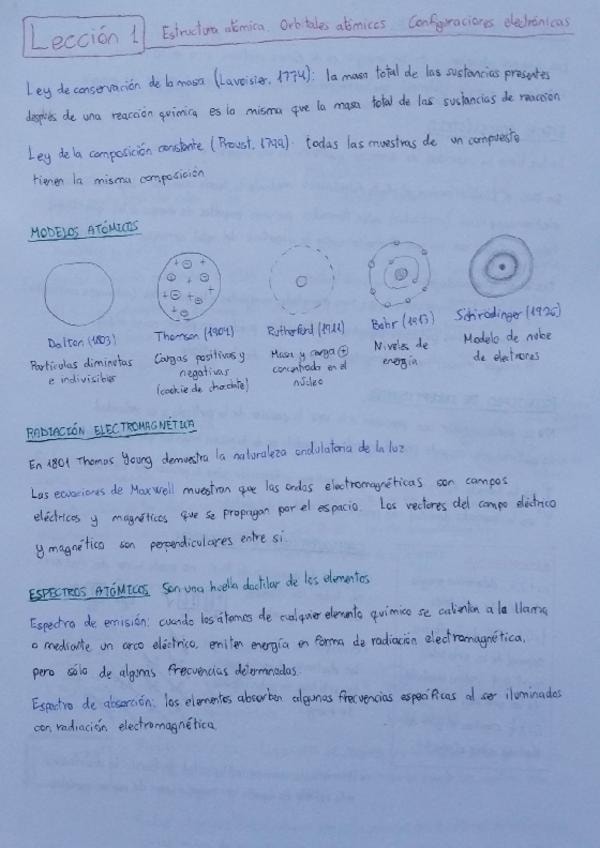 Lección 1 Estructura atómica. Orbitales atómicos. Configuraciones electrónicas
Ley de conservación de la masa (Lavoisier, 1774): la masa total de las sustancias presentes
después de una reacción química es la misma que la masa total de las sustancias de reacción
Ley de la composición constante (Proust, 1799): todas las muestras de un compuesto
tienen la misma composición
MODELOS ATÓMICOS
Dalton (1803)
Partículas diminutas
e indivisibles
Thomson (1904)
Cargas positivas y
negativas
(cookie de chocolate)
Rutherford (1911)
Masa y carga +
concentrada en el
núcleo
Bohr (1913)
Niveles de
energía
Schrödinger (1926)
Modelo de nube
de electrones
RADIACIÓN ELECTROMAGNÉTICA
En 1801 Thomas Young demuestra la naturaleza ondulatoria de la luz
Las ecuaciones de Maxwell muestran que las ondas electromagnéticas son campos
eléctricos y magnéticos que se propagan por el espacio. Los vectores del campo eléctrico
y magnético son perpendiculares entre si.
ESPECTROS ATÓMICOS Son una huella dactilar de los elementos
Espectro de emisión: cuando los átomos de cualquier elemento químico se calientan a la llama
o mediante un arco eléctrico, emiten energía en forma de radiación electromagnética,
pero sólo de algunas frecuencias determinadas.
Espectro de absorción: los elementos absorben algunas frecuencias específicas al ser iluminados
con radiación electromagnética.